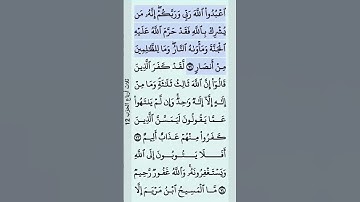 ٱعۡبُدُواْ ٱللَّهَ رَبِّي وَرَبَّكُمۡۖ إِنَّهُۥ مَن
يُشۡرِكۡ بِٱللَّهِ فَقَدۡ حَرَّمَ ٱللَّهُ عَلَيۡهِ
ٱلۡجَنَّةَ وَمَأۡوَىٰهُ ٱلنَّارُۖ وَمَا لِلظَّٰلِمِينَ
مِنۡ أَنصَارٖ ٧٢ لَّقَدۡ كَفَرَ ٱلَّذِينَ
قَالُوٓاْ إِنَّ ٱللَّهَ ثَالِثُ ثَلَٰثَةٖۘ وَمَا مِنۡ
إِلَٰهٍ إِلَّآ إِلَٰهٞ وَٰحِدٞۚ وَإِن لَّمۡ يَنتَهُواْ
عَمَّا يَقُولُونَ لَيَمَسَّنَّ ٱلَّذِينَ
كَفَرُواْ مِنۡهُمۡ عَذَابٌ أَلِيمٌ ٧٣
أَفَلَا يَتُوبُونَ إِلَى ٱللَّهِ
وَيَسۡتَغۡفِرُونَهُۥۚ وَٱللَّهُ غَفُورٞ رَّحِيمٞ
٧٤ مَّا ٱلۡمَسِيحُ ٱبۡنُ مَرۡيَمَ إِلَّا
ثلاثة أرباع الحزب 12